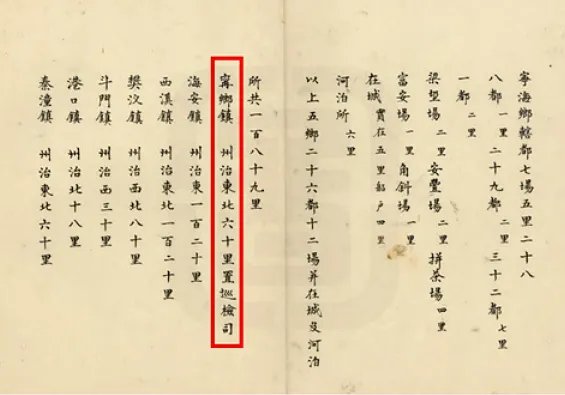 寧海鄉轄都七場五里二十八
八都 一里 二十九都 二里 三十二都 七里
一都 二里
梁垛場 二里 安豐場 二里 拼茶場 四里
富安場 一里 角斜場 一里
在城 實在五里船戶四里
河泊所 六里
以上五鄉二十六都十二場并在城及河泊
所共一百八十九里
寧鄉鎮 州治東北六十里置巡檢司
海安鎮 州治東一百二十里
西溪鎮 州治東北一百二十里
樊汊鎮 州治西北八十里
斗門鎮 州治西三十里
港口鎮 州治北十八里
秦潼鎮 州治東北六十里